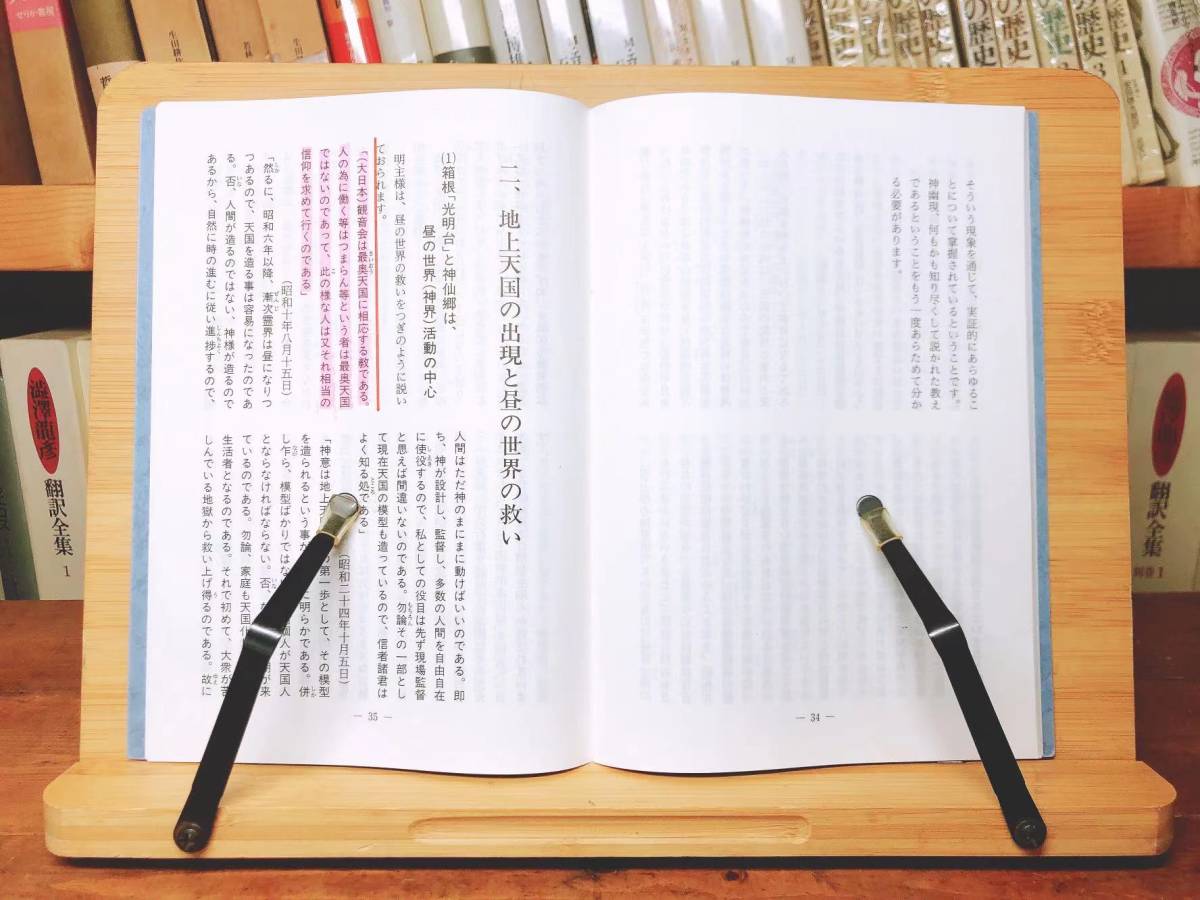 そういう現象を通じて、実証的にあらゆるこ
とについて掌握されているということです。
神幽現、何もかも知り尽くして説かれた教え
であるということをもう一度あらためて分か
る必要があります。
― 34 ―
二、地上天国の出現と昼の世界の救い
(1)箱根「光明台」と神仙郷は、
昼の世界(神界)活動の中心
明主様は、昼の世界の救いをつぎのように説い
ておられます。
「(大日本)観音会は最奥天国に相応する教である。
人の為に働く等はつまらん等という者は最奥天国
ではないのであって、此の様な人は又それ相当の
信仰を求めて行くのである」
(昭和十年八月十五日)
「然るに、昭和六年以降、漸次霊界は昼になりつ
つあるので、天国を造る事は容易になったのであ
る。否、人間が造るのではない、神様が造るので
あるから、自然に時の進むに従い進捗するので、
人間はただ神のまにまに動けばいいのである。即
ち、神が設計し、監督し、多数の人間を自由自在
に使役するので、私としての役目は先ず現場監督
と思えば間違いないのである。勿論その一部とし
て現在天国の模型も造っているので、信者諸君は
よく知る処である」
(昭和二十四年十月五日)
「神意は地上天 の第一歩として、その模型
を造られるという事が に明らかである。併
し乍ら、模型ばかりではな 個人が天国人
とならなければならない。否、 が来
ているのである。勿論、家庭も天国化
生活者となるのである。それで初めて、大衆が苦
しんでいる地獄から救い上げ得るのである。故に
― 35 ―
澁澤龍彦
翻訳全集
1
翻訳全集
別巻1
の歴史
の歴史
の歴史
の歴史 3
の歴史 1
せりか書房